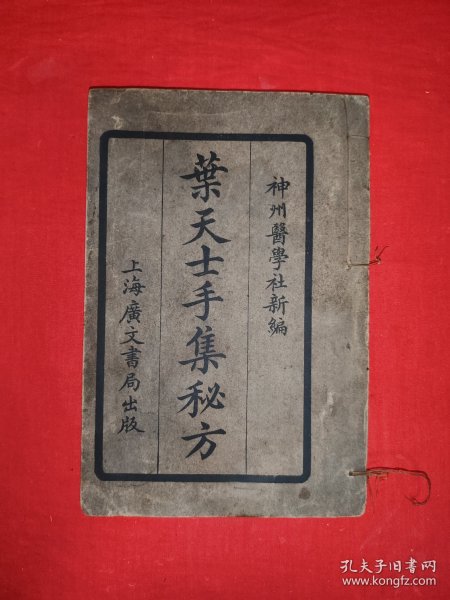 神州醫學社新編
葉天士手集秘方
上海廣文書局出版
孔夫子旧书网
www.kongfz.com